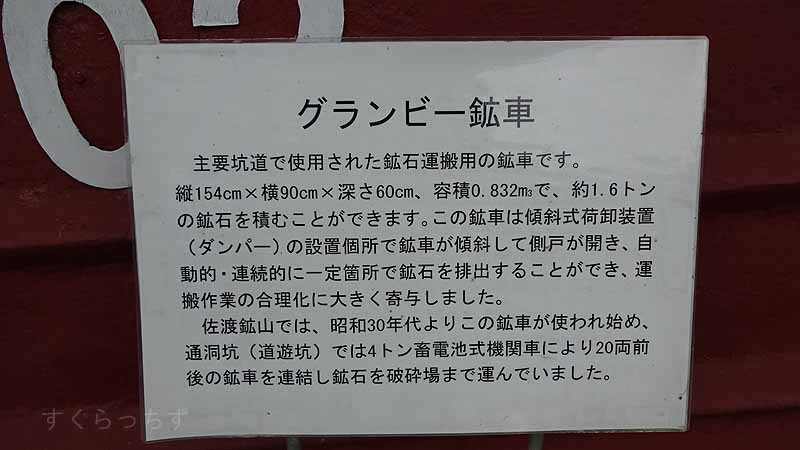 02
グランビー鉱車
主要坑道で使用された鉱石運搬用の鉱車です。
縦154cm×横90cm×深さ60cm、容積0.832m3で、約1.6トン
の鉱石を積むことができます。この鉱車は傾斜式荷卸装置
（ダンパー）の設置個所で鉱車が傾斜して側戸が開き、自
動的・連続的に一定箇所で鉱石を排出することができ、運
搬作業の合理化に大きく寄与しました。
佐渡鉱山では、昭和30年代よりこの鉱車が使われ始め、
通洞坑（道遊坑）では4トン畜電池式機関車により20両前
後の鉱車を連結し鉱石を破砕場まで運んでいました。
すくらっちず